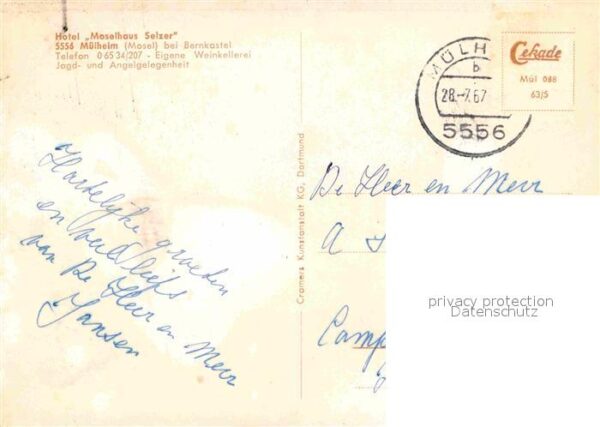 Hotel „Moselhaus Selzer"
5556 Mülheim (Mosel) bei Bernkastel
Telefon 0 65 34/207 - Eigene Weinkellerei
Jagd- und Angelgelegenheit
MÜLH
b
28.-7.67
5556
Cekade
Mül 088
63/5
Hartelijke groeten
en veel liefs
van De Heer en Mevr
Jansen
Cramers Kunstanstalt KG, Dortmund
De Heer en Mevr
A
Camp
privacy protection
Datenschutz